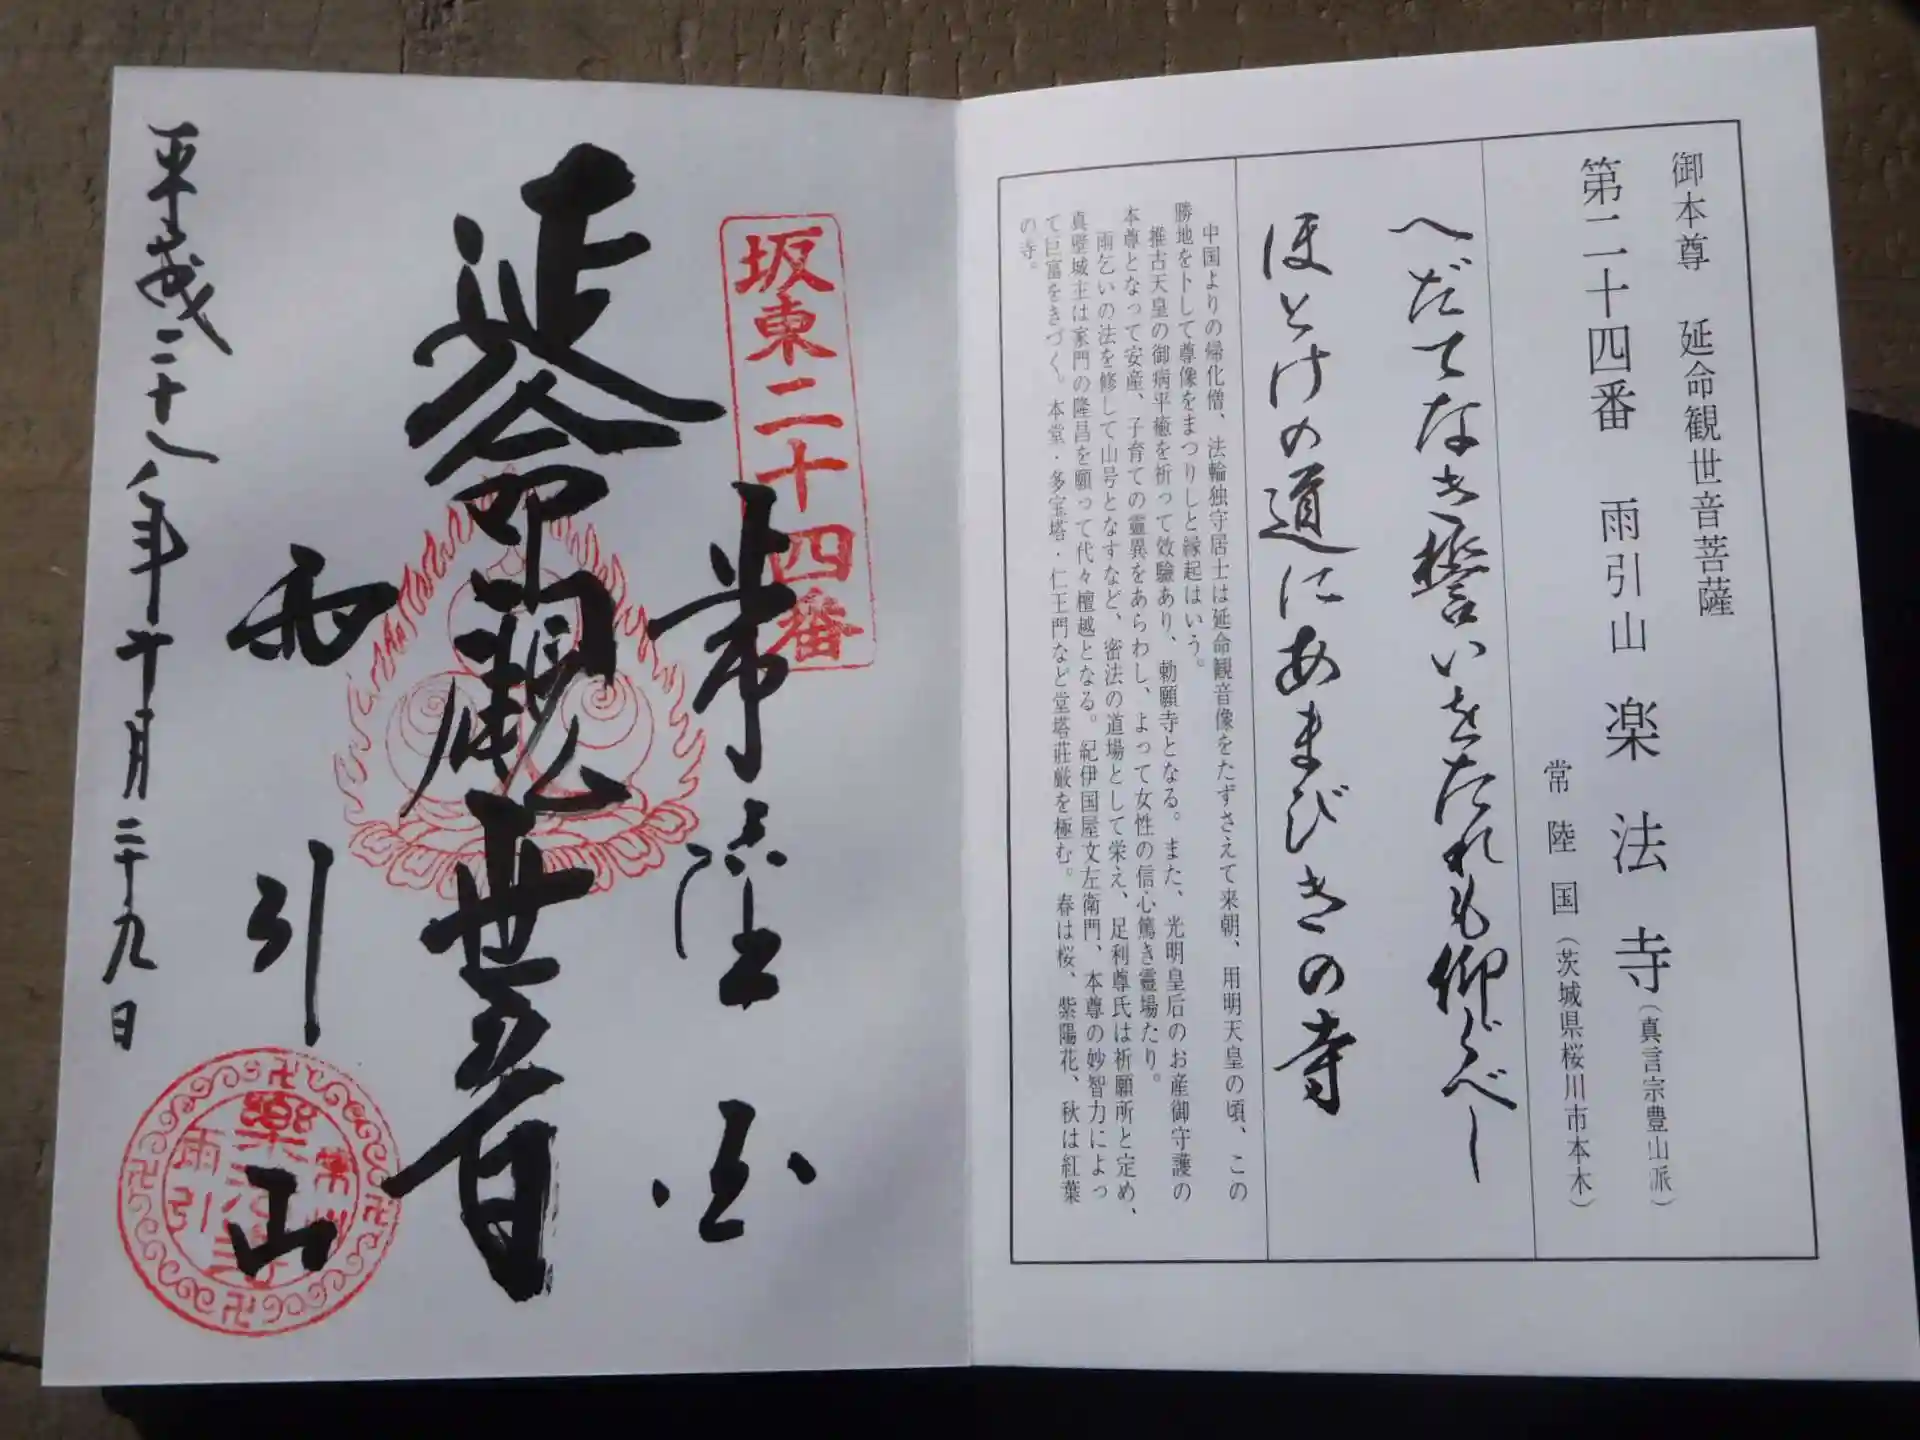 御本尊　延命観世音菩薩
第二十四番　雨引山　楽法寺（真言宗豊山派）
常陸国（茨城県桜川市本木）
へだてなき誓いをたれも仰ぐべし
ほとけの道にあまびきの寺
中国よりの帰化僧、法輪独守居士は延命観音像をたずさえて来朝、用明天皇の頃、この
勝地を卜して尊像をまつりしと縁起はいう。
推古天皇の御病平癒を祈って効験あり、勅願寺となる。また、光明皇后のお産御守護の
本尊となって安産、子育ての霊異をあらわし、よって女性の信心篤き霊場たり。
雨乞いの法を修して山号となすなど、密法の道場として栄え、足利尊氏は祈願所と定め、
真壁城主は家門の隆昌を願って代々檀越となる。紀伊国屋文左衛門、本尊の妙智力によっ
て巨富をきづく。本堂・多宝塔・仁王門など堂塔荘厳を極む。春は桜、紫陽花、秋は紅葉
の寺。
坂東二十四番
常陸国
延命観世音
雨引山
平成二十八年十月二十九日
雨引